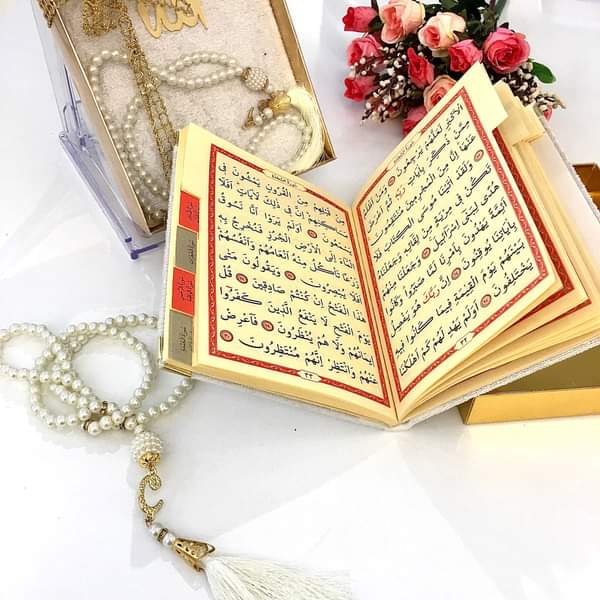 سورة السجدة
اَلْاَكْبَرِ لَعَلَّهُمْ يَرْجِعُونَ
مِمَّنْ ذُكِّرَ بِاٰيَاتِ رَبِّهِ
عَنْهَا اِنَّا مِنَ الْمُجْرِمِينَ مُنْتَقِمُونَ
وَلَقَدْ اٰتَيْنَا مُوسَى الْكِتَابَ فَلَا
تَكُنْ فِي مِرْيَةٍ مِنْ لِقَائِهِ وَجَعَلْنَاهُ
هُدًى لِبَنِي اِسْرَائِيلَ وَجَعَلْنَا مِنْهُمْ
اَئِمَّةً يَهْدُونَ بِاَمْرِنَا لَمَّا صَبَرُوا وَكَانُوا
بِاٰيَاتِنَا يُوقِنُونَ اِنَّ رَبَّكَ هُوَ يَفْصِلُ
بَيْنَهُمْ يَوْمَ الْقِيٰمَةِ فِيمَا كَانُوا فِيهِ
يَخْتَلِفُونَ اَوَلَمْ يَهْدِ لَهُمْ كَمْ اَهْلَكْنَا
سورة السجدة
مِنْ قَبْلِهِمْ مِنَ الْقُرُونِ يَمْشُونَ فِي
مَسَاكِنِهِمْ اِنَّ فِي ذٰلِكَ لَاٰيَاتٍ اَفَلَا
يَسْمَعُونَ اَوَلَمْ يَرَوْا اَنَّا نَسُوقُ
الْمَاءَ اِلَى الْاَرْضِ الْجُرُزِ فَنُخْرِجُ بِهِ
زَرْعًا تَأْكُلُ مِنْهُ اَنْعَامُهُمْ وَاَنْفُسُهُمْ
اَفَلَا يُبْصِرُونَ وَيَقُولُونَ مَتٰى
هٰذَا الْفَتْحُ اِنْ كُنْتُمْ صَادِقِينَ قُلْ
يَوْمَ الْفَتْحِ لَا يَنْفَعُ الَّذِينَ كَفَرُوا
اِيمَانُهُمْ وَلَا هُمْ يُنْظَرُونَ فَاَعْرِضْ
عَنْهُمْ وَانْتَظِرْ اِنَّهُمْ مُنْتَظِرُونَ